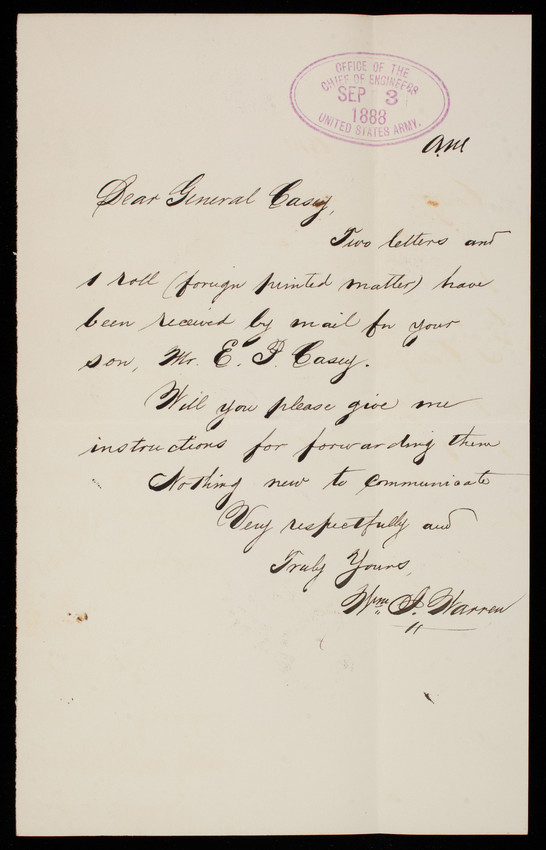 OFFICE OF THE
CHIEF OF ENGINEERS
SEP 3
1888
UNITED STATES ARMY.
a.m
Dear General Casey,
Two letters and
1 roll (foreign printed matter) have
been received by mail for your
son, Mr. E. P. Casey.
Will you please give me
instructions for forwarding them
Nothing new to communicate
Very respectfully and
Truly Yours,
Wm. J. Warren